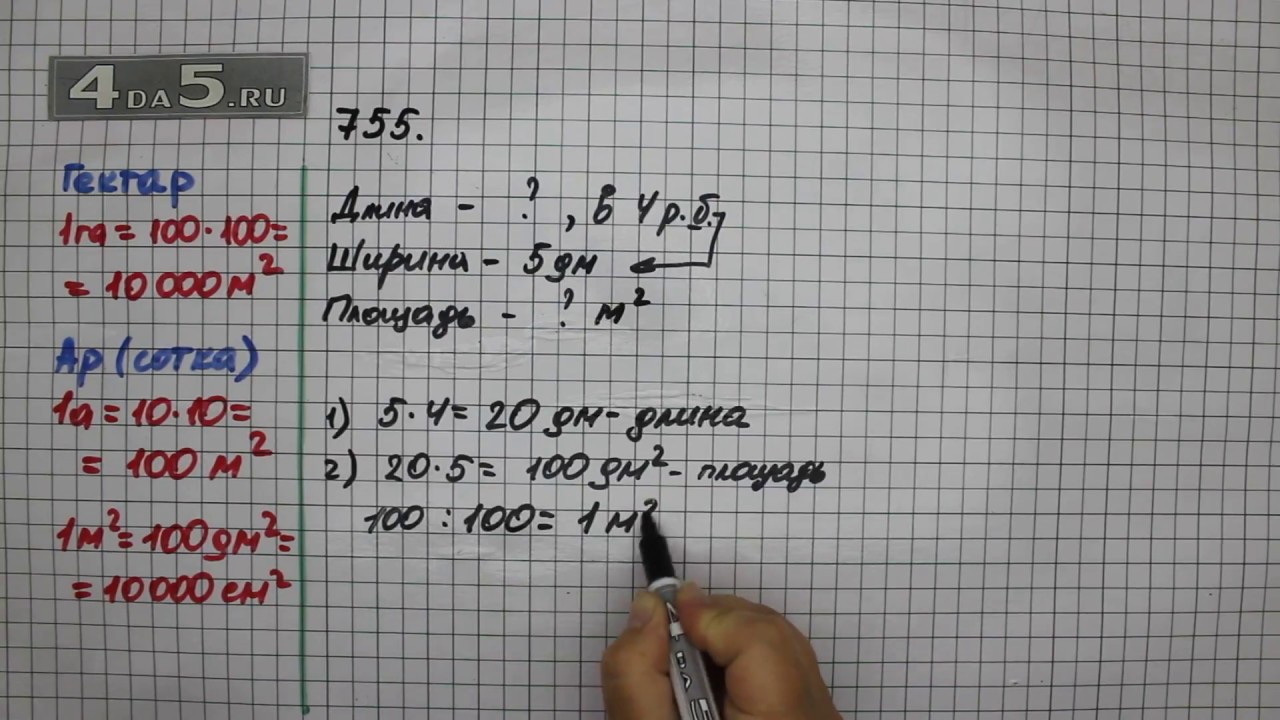 4DA5.RU
755.
Гектар
1га = 100·100=
= 10 000 м²
Ар (сотка)
1а = 10·10=
= 100 м²
1м²= 100дм²=
= 10000 см²
Длина - ? , в 4 р.б.
Ширина - 5 дм
Площадь - ? м²
1) 5·4= 20 дм- длина
2) 20·5= 100 дм²- площадь
100 : 100= 1 м²
4DA5